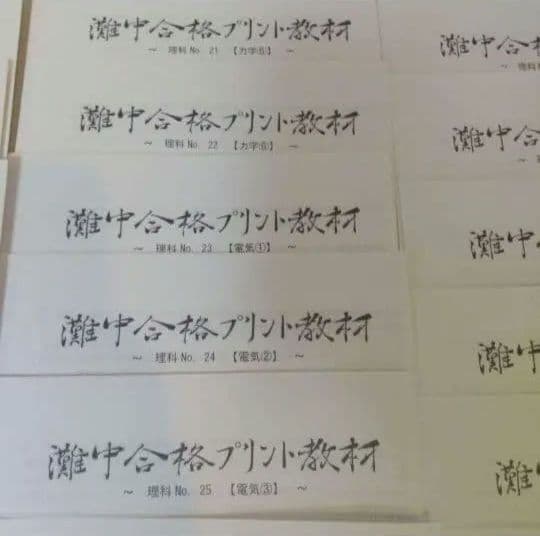 灘中合格プリント教材
~ 理科No. 21 【力学⑤】 ~
灘中合格プリント教材
~ 理科No. 22 【力学⑥】 ~
灘中合格プリント教材
~ 理科No. 23 【電気①】 ~
灘中合格プリント教材
~ 理科No. 24 【電気②】 ~
灘中合格プリント教材
~ 理科No. 25 【電気③】 ~
灘中合
灘中合
灘中
灘中
灘中